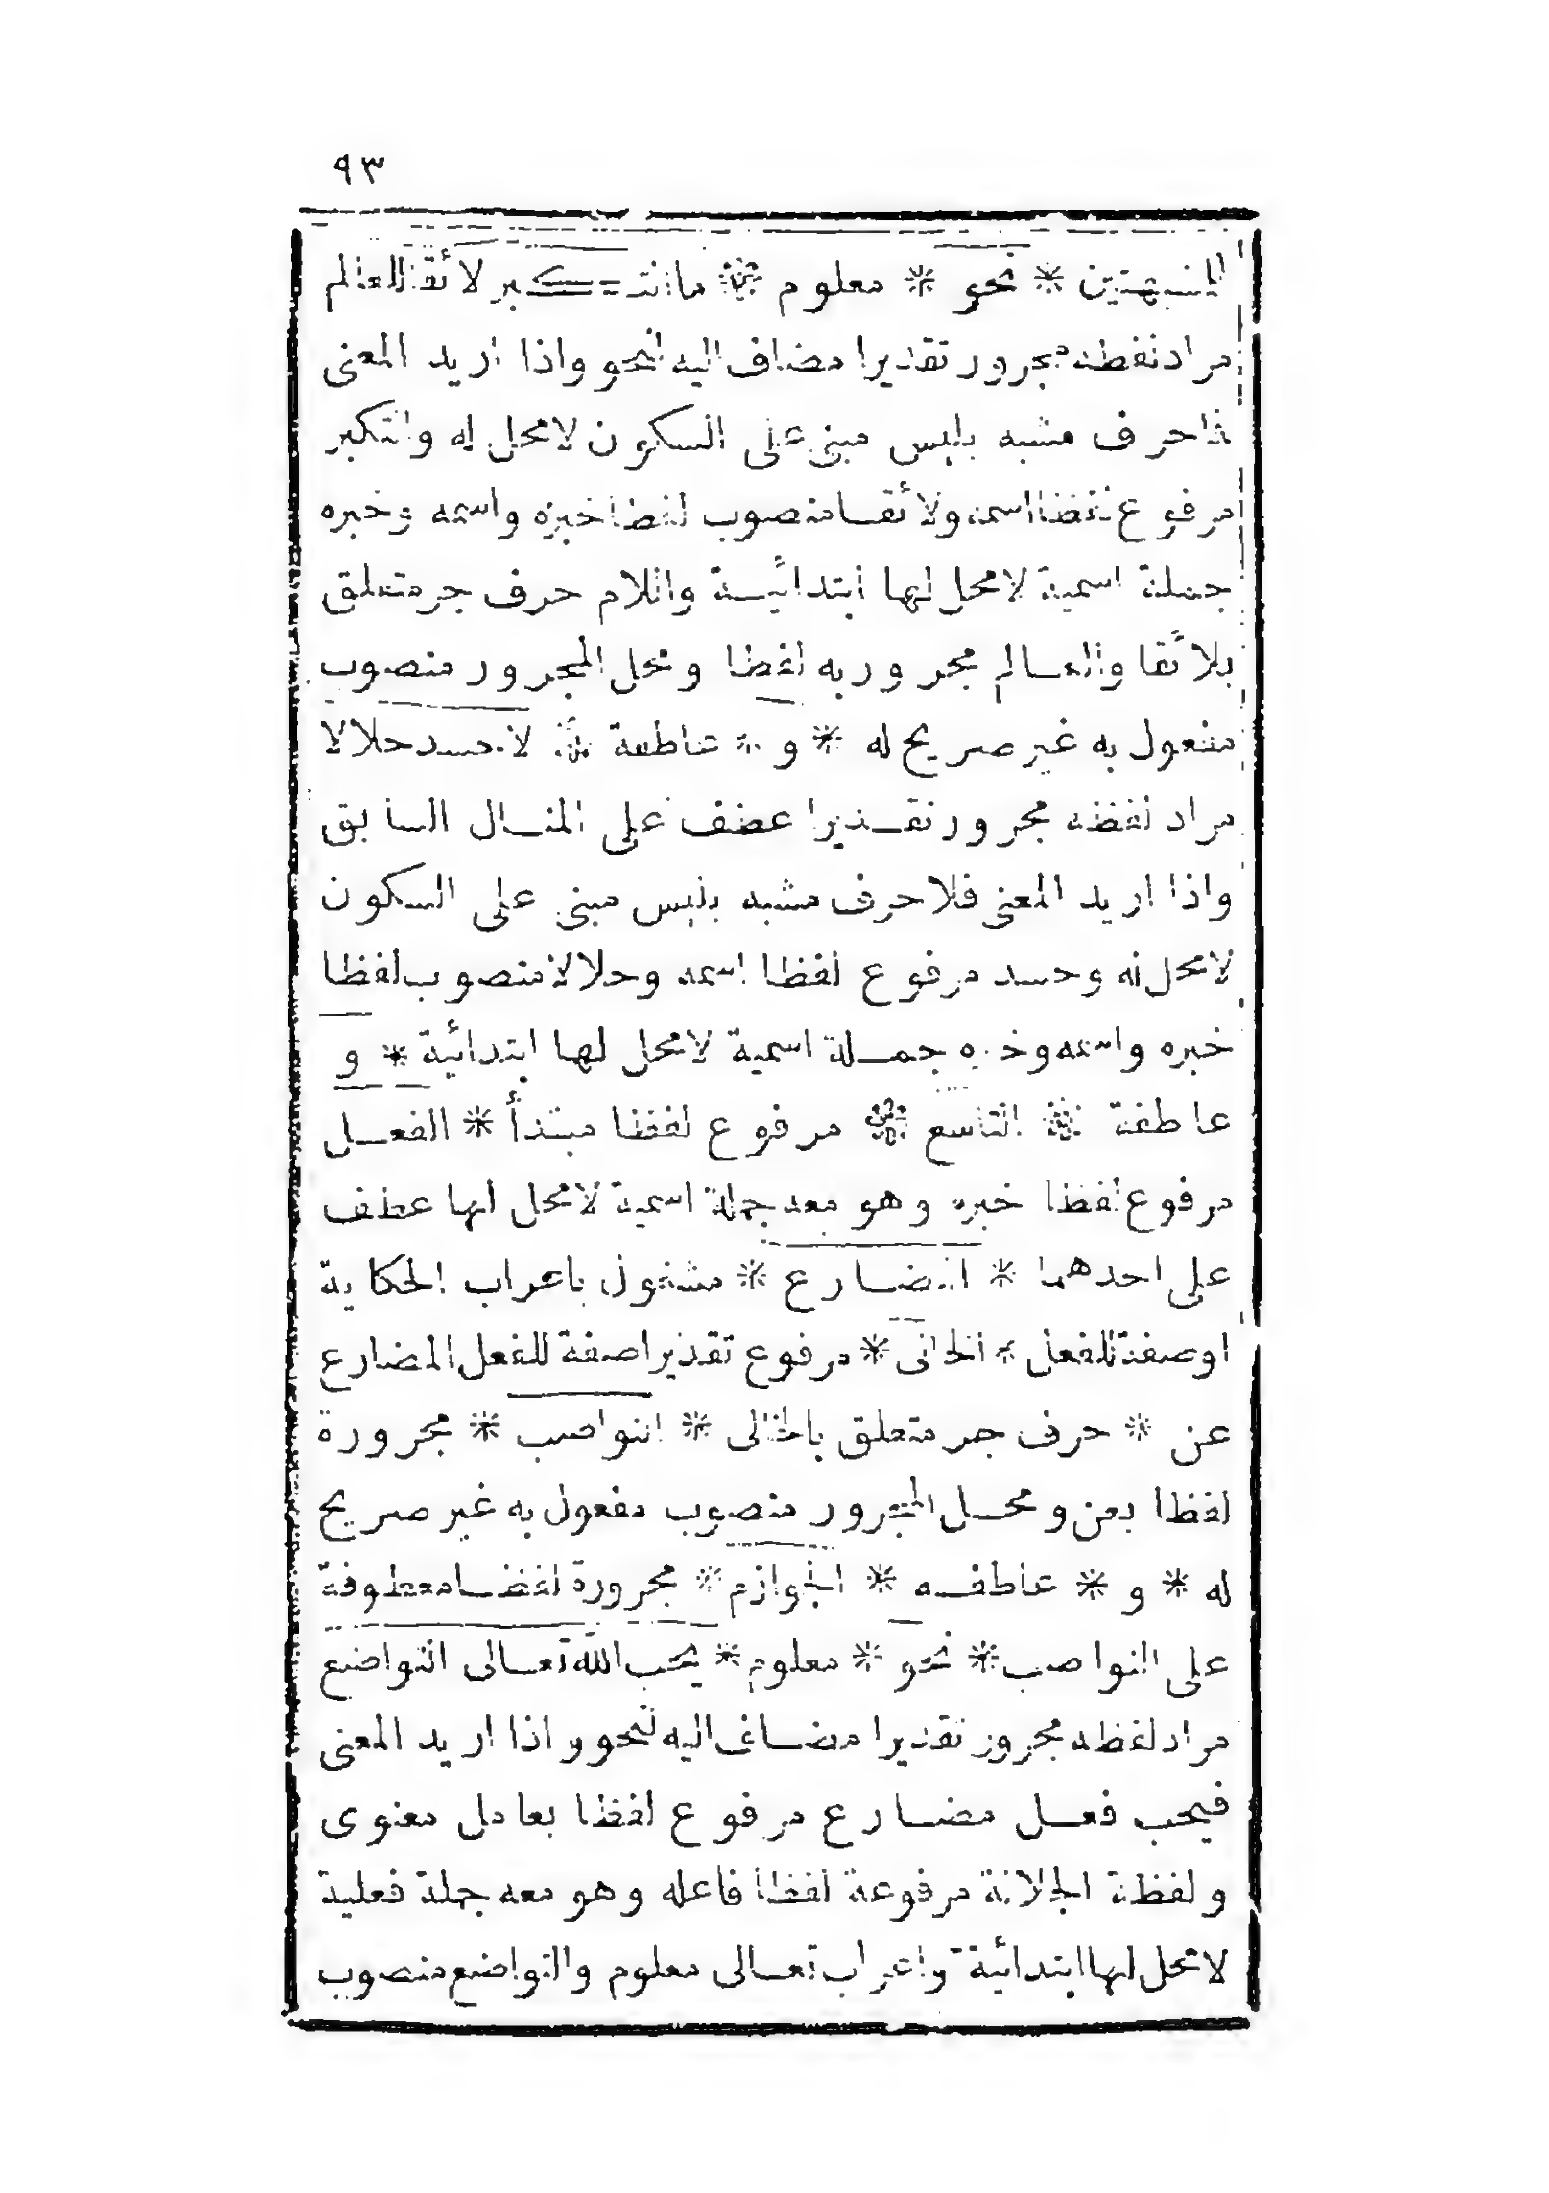 ٩٣
المشبهتين * نحو * معلوم * ما التكبر لائقا للعالم
مراد لفظه مجرور تقديرا مضاف اليه لنحو واذا اريد المعنى
فا حرف مشبه بليس مبنى على السكون لا محل له والتكبر
مرفوع لفظا اسمه ولائقا منصوب لفظا خبره واسمه وخبره
جملة اسمية لا محل لها ابتدائية واللام حرف جر متعلق
بلائقا والعالم مجرور به لفظا ومحل المجرور منصوب
مفعول به غير صريح له * و * عاطفة * لا حسد حلالا
مراد لفظه مجرور تقديرا عطف على المثال السابق
واذا اريد المعنى فلا حرف مشبه بليس مبنى على السكون
لا محل له وحسد مرفوع لفظا اسمه وحلالا منصوب لفظا
خبره واسمه وخبره جملة اسمية لا محل لها ابتدائية * و
عاطفة * التاسع * مرفوع لفظا مبتدأ * الفعل
مرفوع لفظا خبره وهو معه جملة اسمية لا محل لها عطف
على احدهما * المضارع * مشغول باعراب الحكاية
او صفة للفعل * الخالى * مرفوع تقديرا صفة للفعل المضارع
عن * حرف جر متعلق بالخالى * النواصب * مجرورة
لفظا بعن ومحل المجرور منصوب مفعول به غير صريح
له * و * عاطفه * الجوازم * مجرورة لفظا معطوفة
على النواصب * نحو * معلوم * يحب الله تعالى التواضع
مراد لفظه مجرور تقديرا مضاف اليه لنحو واذا اريد المعنى
فيحب فعل مضارع مرفوع لفظا بعامل معنوى
ولفظة الجلالة مرفوعة لفظا فاعله وهو معه جملة فعلية
لا محل لها ابتدائية واعراب تعالى معلوم والتواضع منصوب